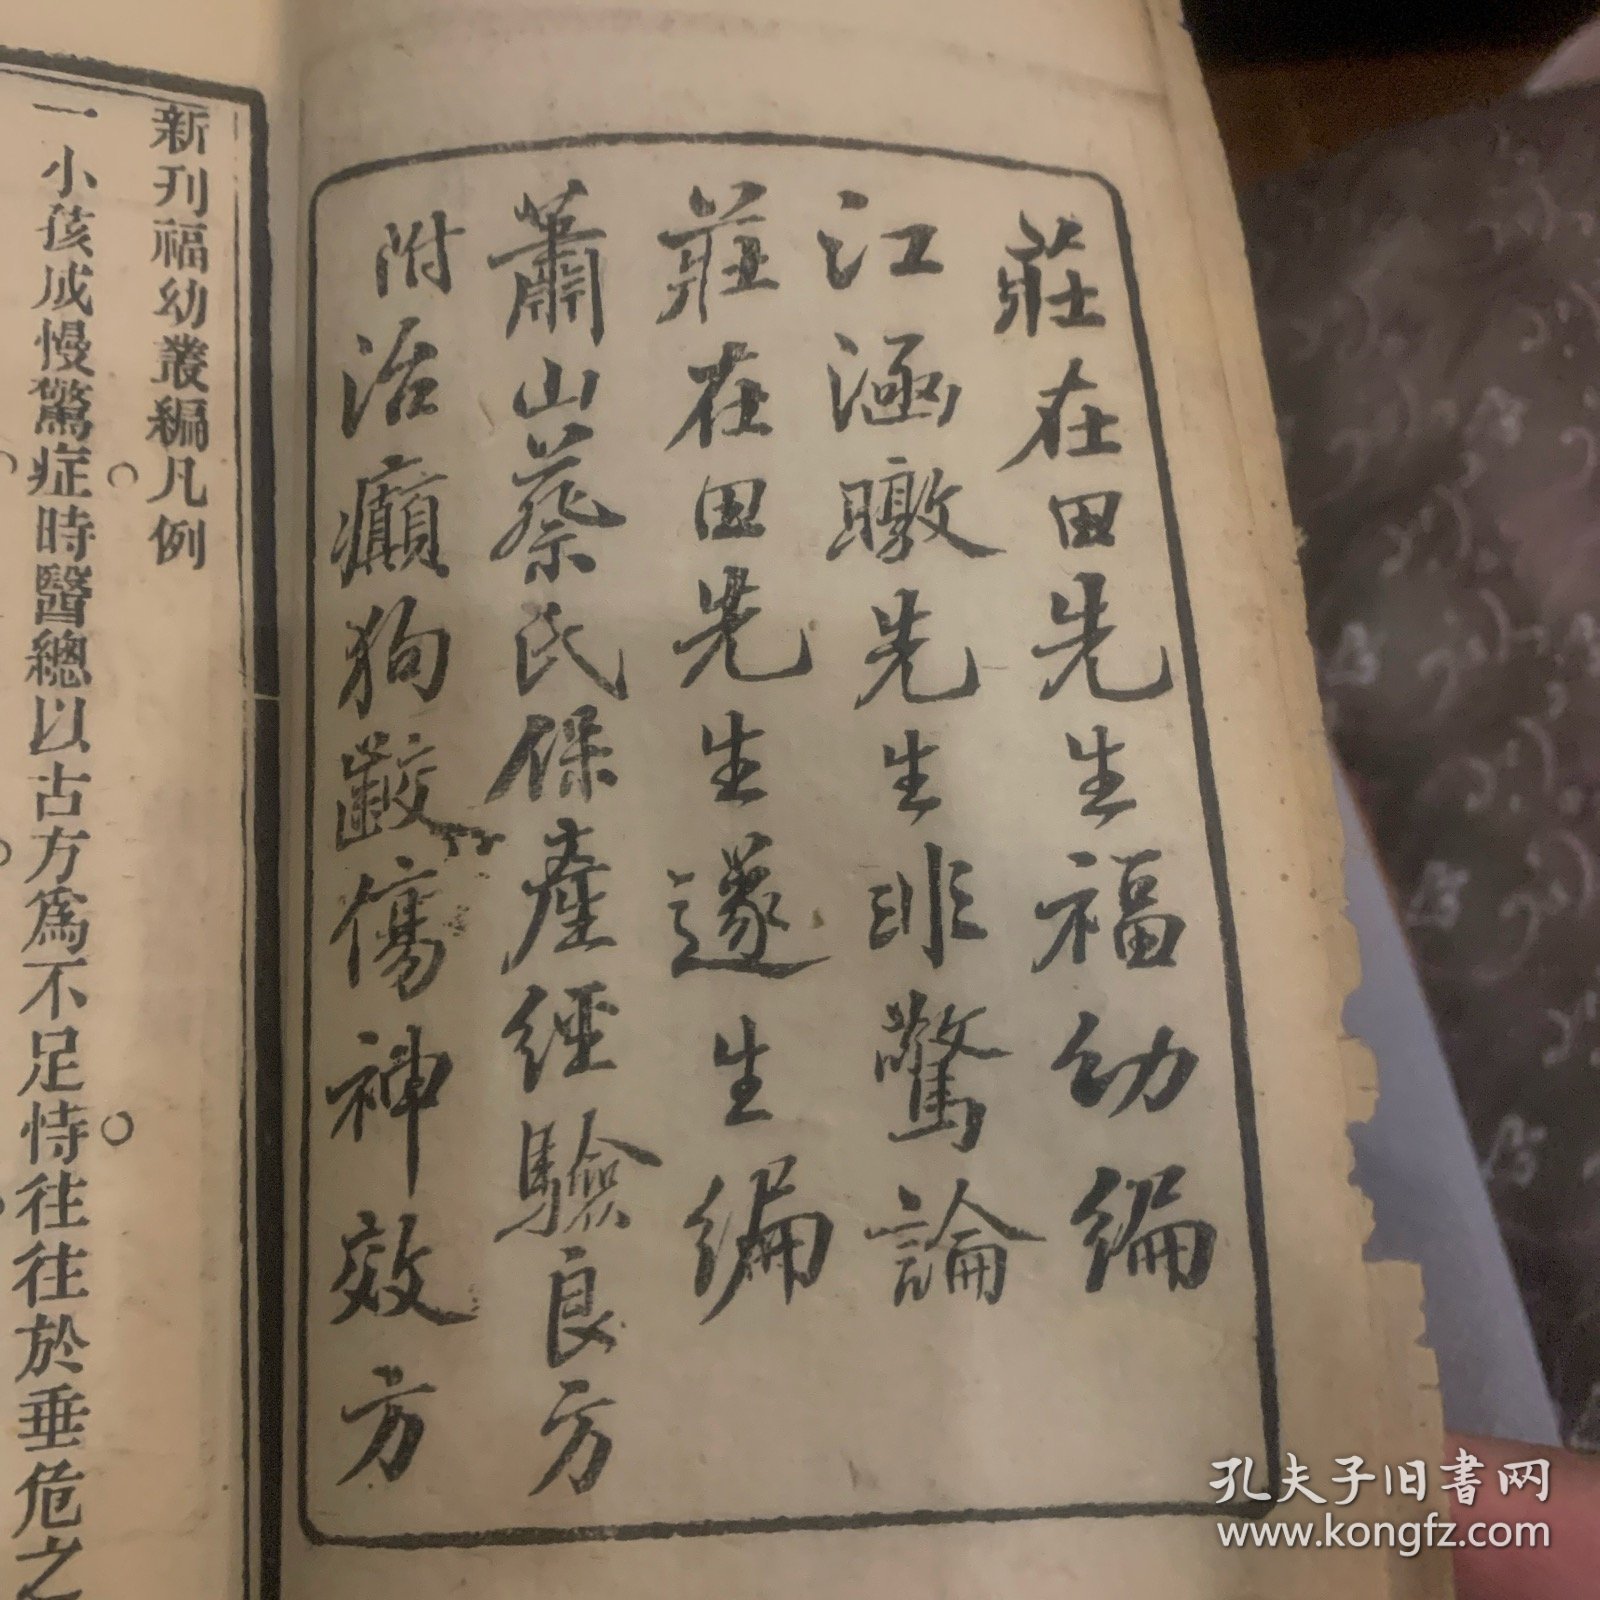 莊在田先生福幼編
江涵暾先生非驚論
莊在田先生遂生編
蕭山蔡氏保產經驗良方
附治癲狗齩傷神效方
新刊福幼叢編凡例
一小孩成慢驚症時醫總以古方為不足恃往往於垂危之
孔夫子旧書网
www.kongfz.com